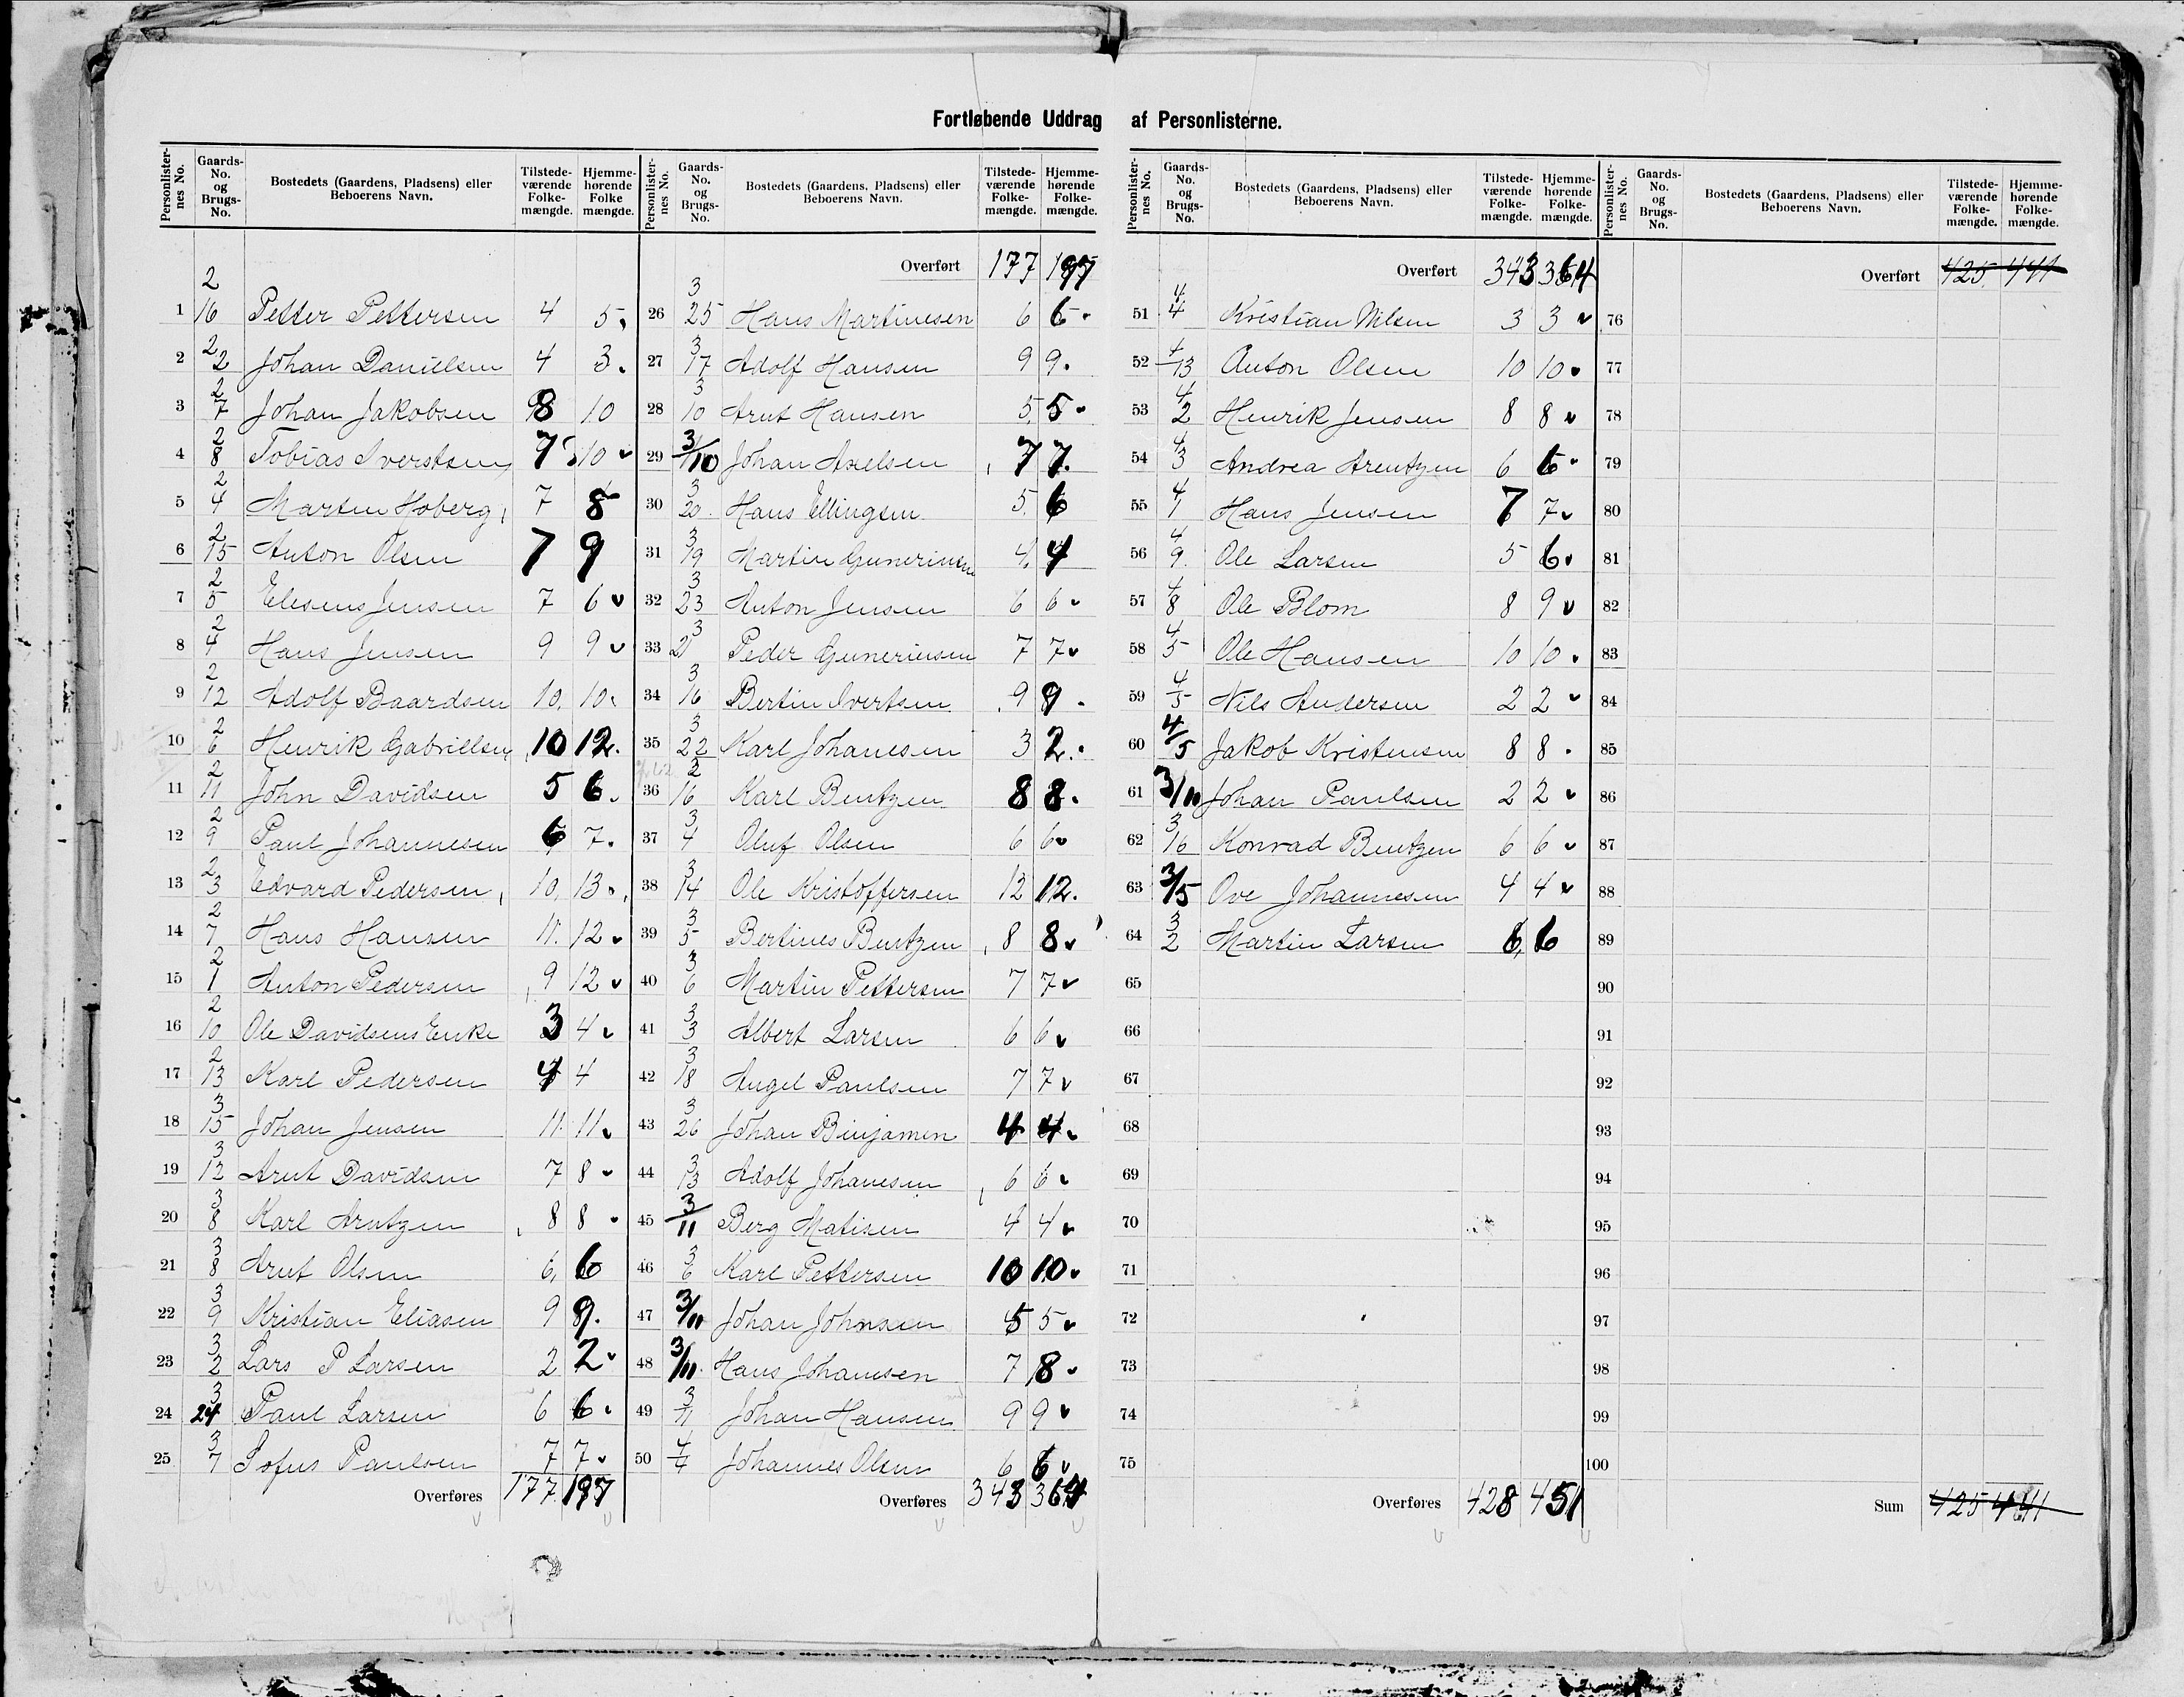 Fortløbende Uddrag af Personlisterne.
Personlister-nes No. Gaards-No. og Brugs-No. Bostedets (Gaardens, Pladsens) eller Beboerens Navn. Tilstede-værende Folke-mængde. Hjemme-hørende Folke mængde.
1 2/16 Petter Pettersen 4 5
2 2/2 Johan Danielsen 4 3
3 2/7 Johan Jakobsen 8 10
4 2/8 Tobias Iverstsen 7 10
5 2/4 Martin Hoberg 7 8
6 2/15 Anton Olsen 7 9
7 2/5 Elesens Jensen 7 6
8 2/4 Hans Jensen 9 9
9 2/12 Adolf Baardsen 10 10
10 2/6 Henrik Gabrillsen 10 12
11 2/11 John Davidsen 5 6
12 2/9 Paul Johannesen 6 7
13 2/3 Edvard Pedersen 10 13
14 2/7 Hans Hansen 11 12
15 2/1 Anton Pedersen 9 12
16 2/10 Ole Davidsens Enke 3 4
17 2/13 Karl Pedersen 4 4
18 3/15 Johan Jensen 11 11
19 3/12 Arnt Davidsen 7 8
20 3/8 Karl Arntzen 8 8
21 3/8 Arnt Olsen 6 6
22 3/9 Kristian Eliasen 9 9
23 3/2 Lars P Larsen 2 2
24 3/24 Paul Larsen 6 6
25 3/7 Sofus Paulsen 7 7
Overføres 177 197
Personlister-nes No. Gaards-No. og Brugs-No. Bostedets (Gaardens, Pladsens) eller Beboerens Navn. Tilstede-værende Folke-mængde. Hjemme-hørende Folke-mængde.
Overført 177 197
26 3/25 Hans Martinesen 6 6
27 3/17 Adolf Hansen 9 9
28 3/10 Arnt Hansen 5 5
29 3/10 Johan Axelsen 7 7
30 3/20 Hans Ellingsen 5 6
31 3/19 Martin Gunerinsen 4 4
32 3/23 Anton Jensen 6 6
33 3/21 Peder Guneriusen 7 7
34 3/16 Bertin Ivertsen 9 9
35 3/22 Karl Johanesen 3 2
36 3/16 Karl Bentzen 8 8
37 3/4 Oluf Olsen 6 6
38 3/14 Ole Kristoffersen 12 12
39 3/5 Bertines Bentzen 8 8
40 3/6 Martin Pettersen 7 7
41 3/3 Albert Larsen 6 6
42 3/18 Angel Paulsen 7 7
43 3/26 Johan Binjamen 4 4
44 3/13 Adolf Johanesen 6 6
45 3/11 Berg Matisen 4 4
46 3/6 Karl Pettersen 10 10
47 3/11 Johan Johnsen 5 5
48 3/11 Hans Johansen 7 8
49 3/11 Johan Hansen 9 9
50 4/7 Johannes Olsen 6 6
Overføres 343 364
Personlister-nes No. Gaards-No. og Brugs-No. Bostedets (Gaardens, Pladsens) eller Beboerens Navn. Tilstede-værende Folke-mængde. Hjemme-hørende Folke-mængde.
Overført 343 364
51 4/4 Kristian Nilsen 3 3
52 4/13 Anton Olsen 10 10
53 4/2 Henrik Jensen 8 8
54 4/3 Andrea Arentzen 6 6
55 4/1 Hans Jensen 7 7
56 4/9 Ole Larsen 5 6
57 4/8 Ole Blom 8 9
58 4/5 Ole Hansen 10 10
59 4/5 Nils Andersen 2 2
60 4/5 Jakob Kristensen 8 8
61 3/11 Johan Paulsen 2 2
62 3/16 Konrad Bentzen 6 6
63 3/5 Ove Johannesen 4 4
64 3/2 Martin Larsen 6 6
65
66
67
68
69
70
71
72
73
74
75
Overføres 428 451
Personlister-nes No. Gaards-No. og Brugs-No. Bostedets (Gaardens, Pladsens) eller Beboerens Navn. Tilstede-værende Folke-mængde. Hjemme-hørende Folke-mængde.
Overført 425 441
76
77
78
79
80
81
82
83
84
85
86
87
88
89
90
91
92
93
94
95
96
97
98
99
100
Sum 425 441